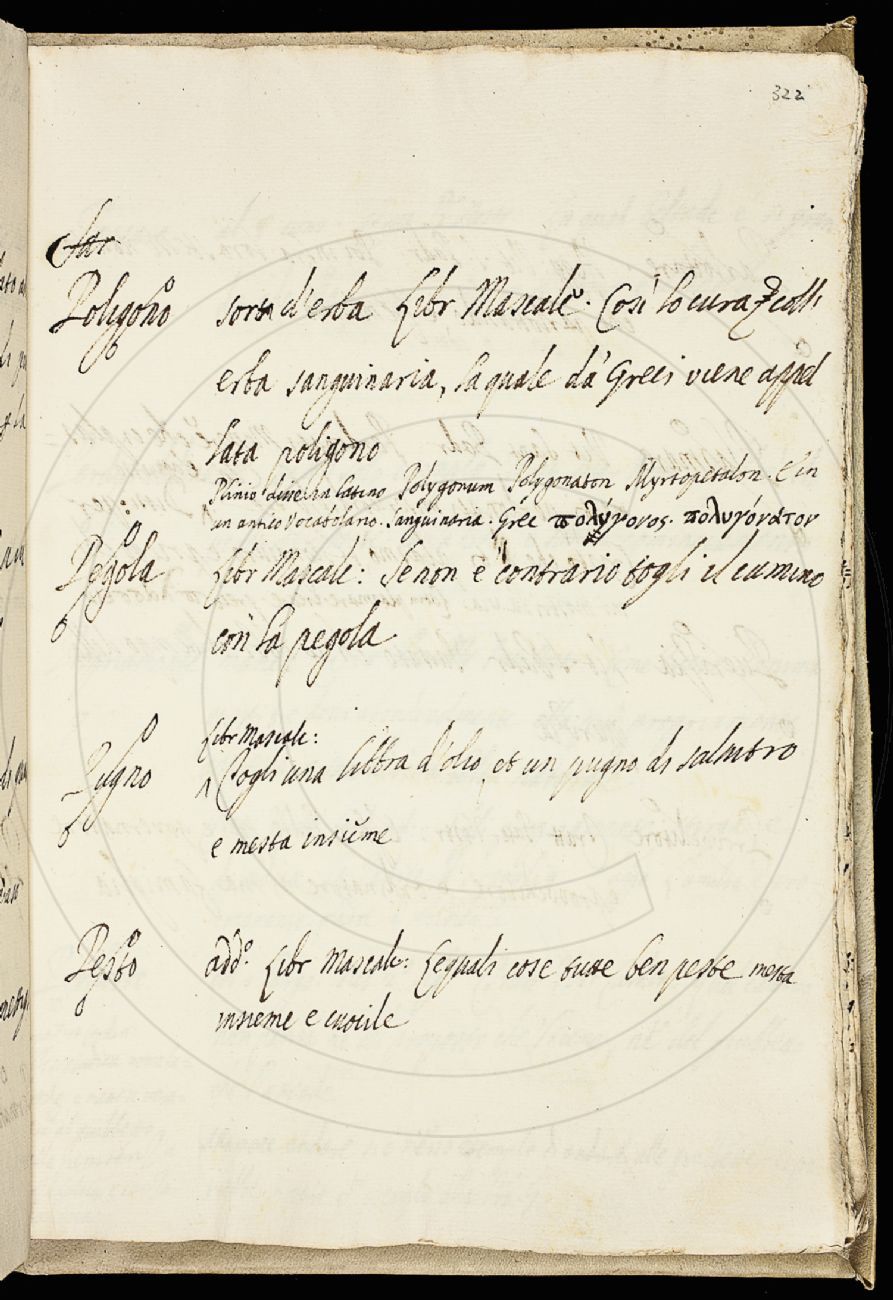 322
Poligono sorta d'erba Libr Mascalc. Così lo cura coll'
erba sanguinaria, la quale da' Greci viene appel
lata poligono
Plinio in latino Polygonum Polygonaton Myrtopetalon. E in
un antico Vocabolario. Sanguinaria. Grec πολύγονος. πολυγόνατον
Pegola Libr Mascalc: Se non è contrario togli il cumino
con la pegola
Libr Mascalc:
Pugno Togli una libbra d'olio, et un pugno di salnitro
e mesta insieme
Pesto add.° Libr Mascalc: Lequali cose tutte ben peste mesta
insieme e cuocile